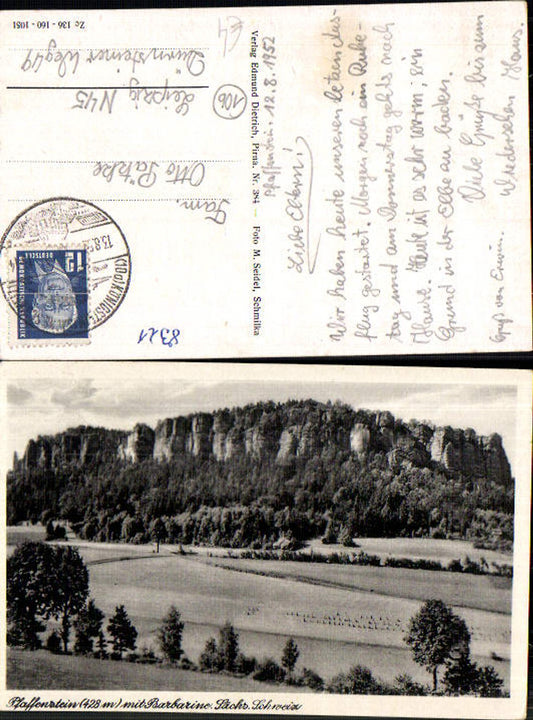 Pfaffendorf, 12.8.1952
Liebe Eltern!
Wir haben heute unseren letzten Aus-
flug gestartet. Morgen noch ein Ruhe-
tag und am Donnerstag gehts nach
Hause. Heute ist es sehr warm; ein
Grund in der Elbe zu baden.
Viele Grüße bis zum
Wiedersehen Hans.
Gruß von
Verlag Edmund Dietrich, Pirna. Nr. 384 — Foto M. Seidel, Schmilka
Fam.
Otto
Leipzig N45
Weg 49
106
Zc 136 - 160 - 1051
12
DEUTSCHE
DEMOKRATISCHE REPUBLIK
8321
€4
Pfaffenstein (428 m) mit Barbarine. Sächs. Schweiz